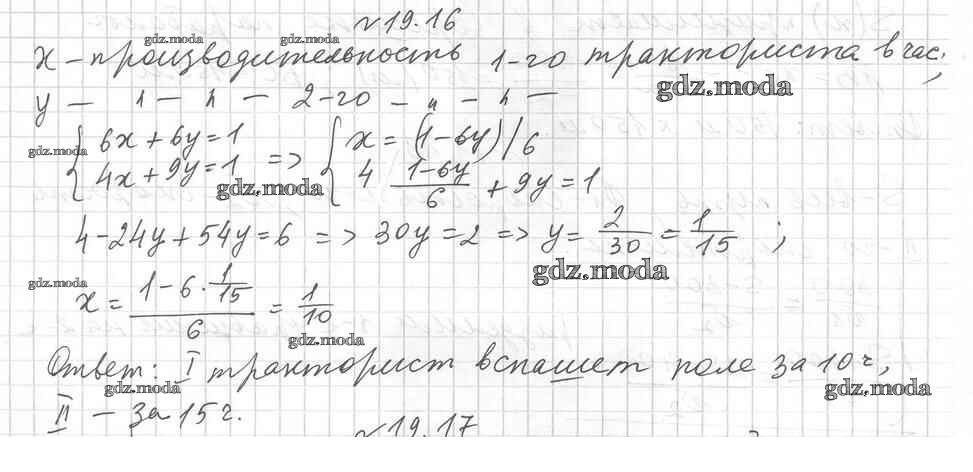 № 19.16
x – производительность 1-го тракториста в час;
y — " — " — 2-го — " — " —
{ 6x + 6y = 1 => { x = (1-6y)/6
{ 4x + 9y = 1 { 4 (1-6y)/6 + 9y = 1
4 - 24y + 54y = 6 => 30y = 2 => y = 2/30 = 1/15 ;
x = (1 - 6 · 1/15)/6 = 1/10
Ответ: I тракторист вспашет поле за 10 ч,
II – за 15 ч.
№ 19.17
gdz.moda
gdz.moda
gdz.moda
gdz.moda
gdz.moda
gdz.moda
gdz.moda
gdz.moda
gdz.moda
gdz.moda